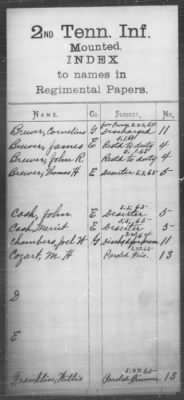 2ND Tenn. Inf.
Mounted.
INDEX
to names in
Regimental Papers.
NAME. Co. SUBJECT. No.
Brewer, Cornelius G Discharged 11
Brewer, James E Retd to duty 4
Brewer, John R Retd to duty 4
Brewer, Thomas H E Deserter 5
Cash, John E Deserter 5
Cash, Merit E Deserter 5
Chambers, Joel H G 11
Cozart, M. H Parold Pris. 13
D
E
Franklin, Willis Parold Prisoner 13